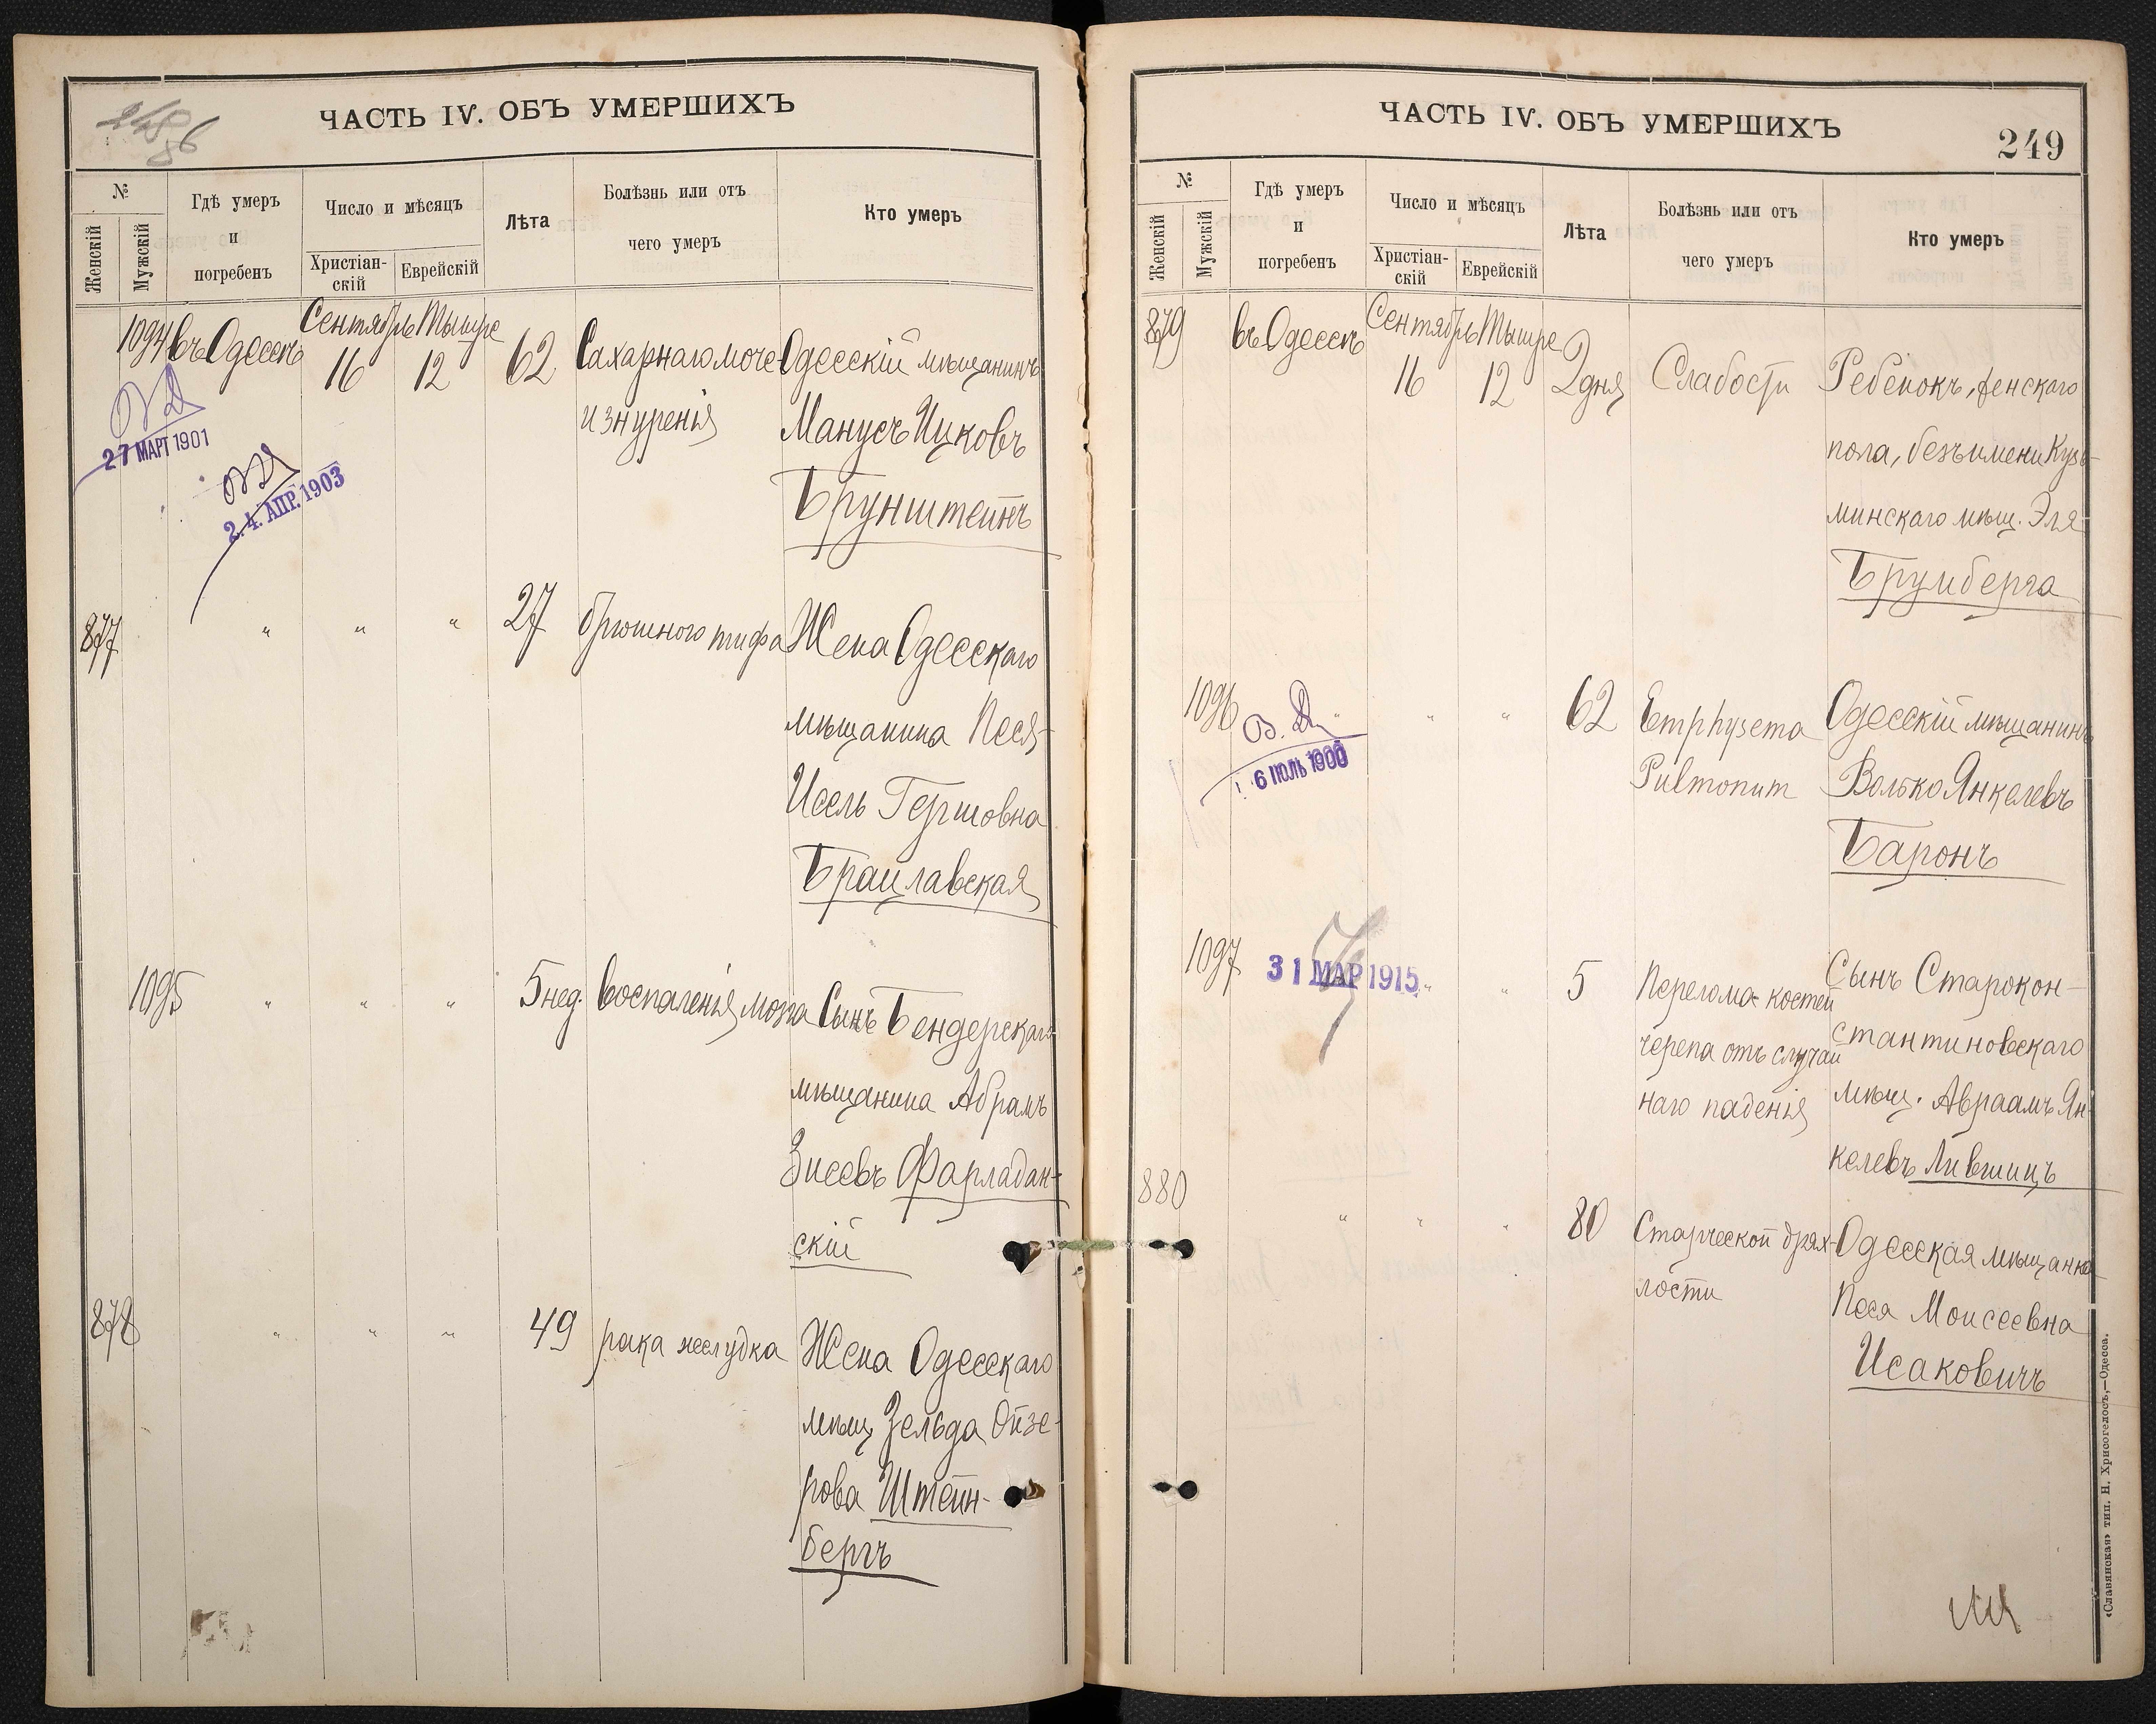 ЧАСТЬ IV. ОБЪ УМЕРШИХЪ
№
Женскій
Мужскій
Гдѣ умеръ
и
погребенъ
Число и мѣсяцъ
Христіан-
скій
Еврейскій
Лѣта
Болѣзнь или отъ
чего умеръ
Кто умеръ
1094 въ Одессѣ Сентябрь 16 Тышре 12 62 Сахарнаго моче- Одесскій мѣщанинъ
изнуренія Манусъ Ицковъ
Брунштейнъ
27 МАРТ 1901
24. АПР. 1903
877 " " " 27 брюшного тифа Жена Одесскаго
мѣщанина Песя-
Исель Гершовна
Брацлавская
1095 " " " 5 нед. воспаленія мозга Сынъ Бендерскаго
мѣщанина Абрамъ
Зисевъ Фарладан-
скій
878 " " " 49 рака желудка Жена Одесскаго
мѣщ. Зельда Ойзе-
рова Штейн-
бергъ
ЧАСТЬ IV. ОБЪ УМЕРШИХЪ
249
№
Женскій
Мужскій
Гдѣ умеръ
и
погребенъ
Число и мѣсяцъ
Христіан-
скій
Еврейскій
Лѣта
Болѣзнь или отъ
чего умеръ
Кто умеръ
879 въ Одессѣ Сентябрь 16 Тышре 12 2 дня Слабости Ребенокъ, женскаго
пола, безъ имени Кузь-
минскаго мѣщ. Эля
Брумберга
1096 " " " 62 Emphysema Одесскій мѣщанинъ
Pulmonum Волько Янкелевъ
Баронъ
6 ІЮЛЬ 1900
1097 " " 5 Перелома костей Сынъ Старокон-
черепа отъ случай стантиновскаго
наго паденія мѣщ. Авраамъ Ян-
келевъ Лившицъ
31 МАР 1915
880 " " " 80 Старческой дрях- Одесская мѣщанка
лости Песя Моисеевна
Исаковичъ
«Славянская» тип. Н. Хрисогелосъ,—Одесса.